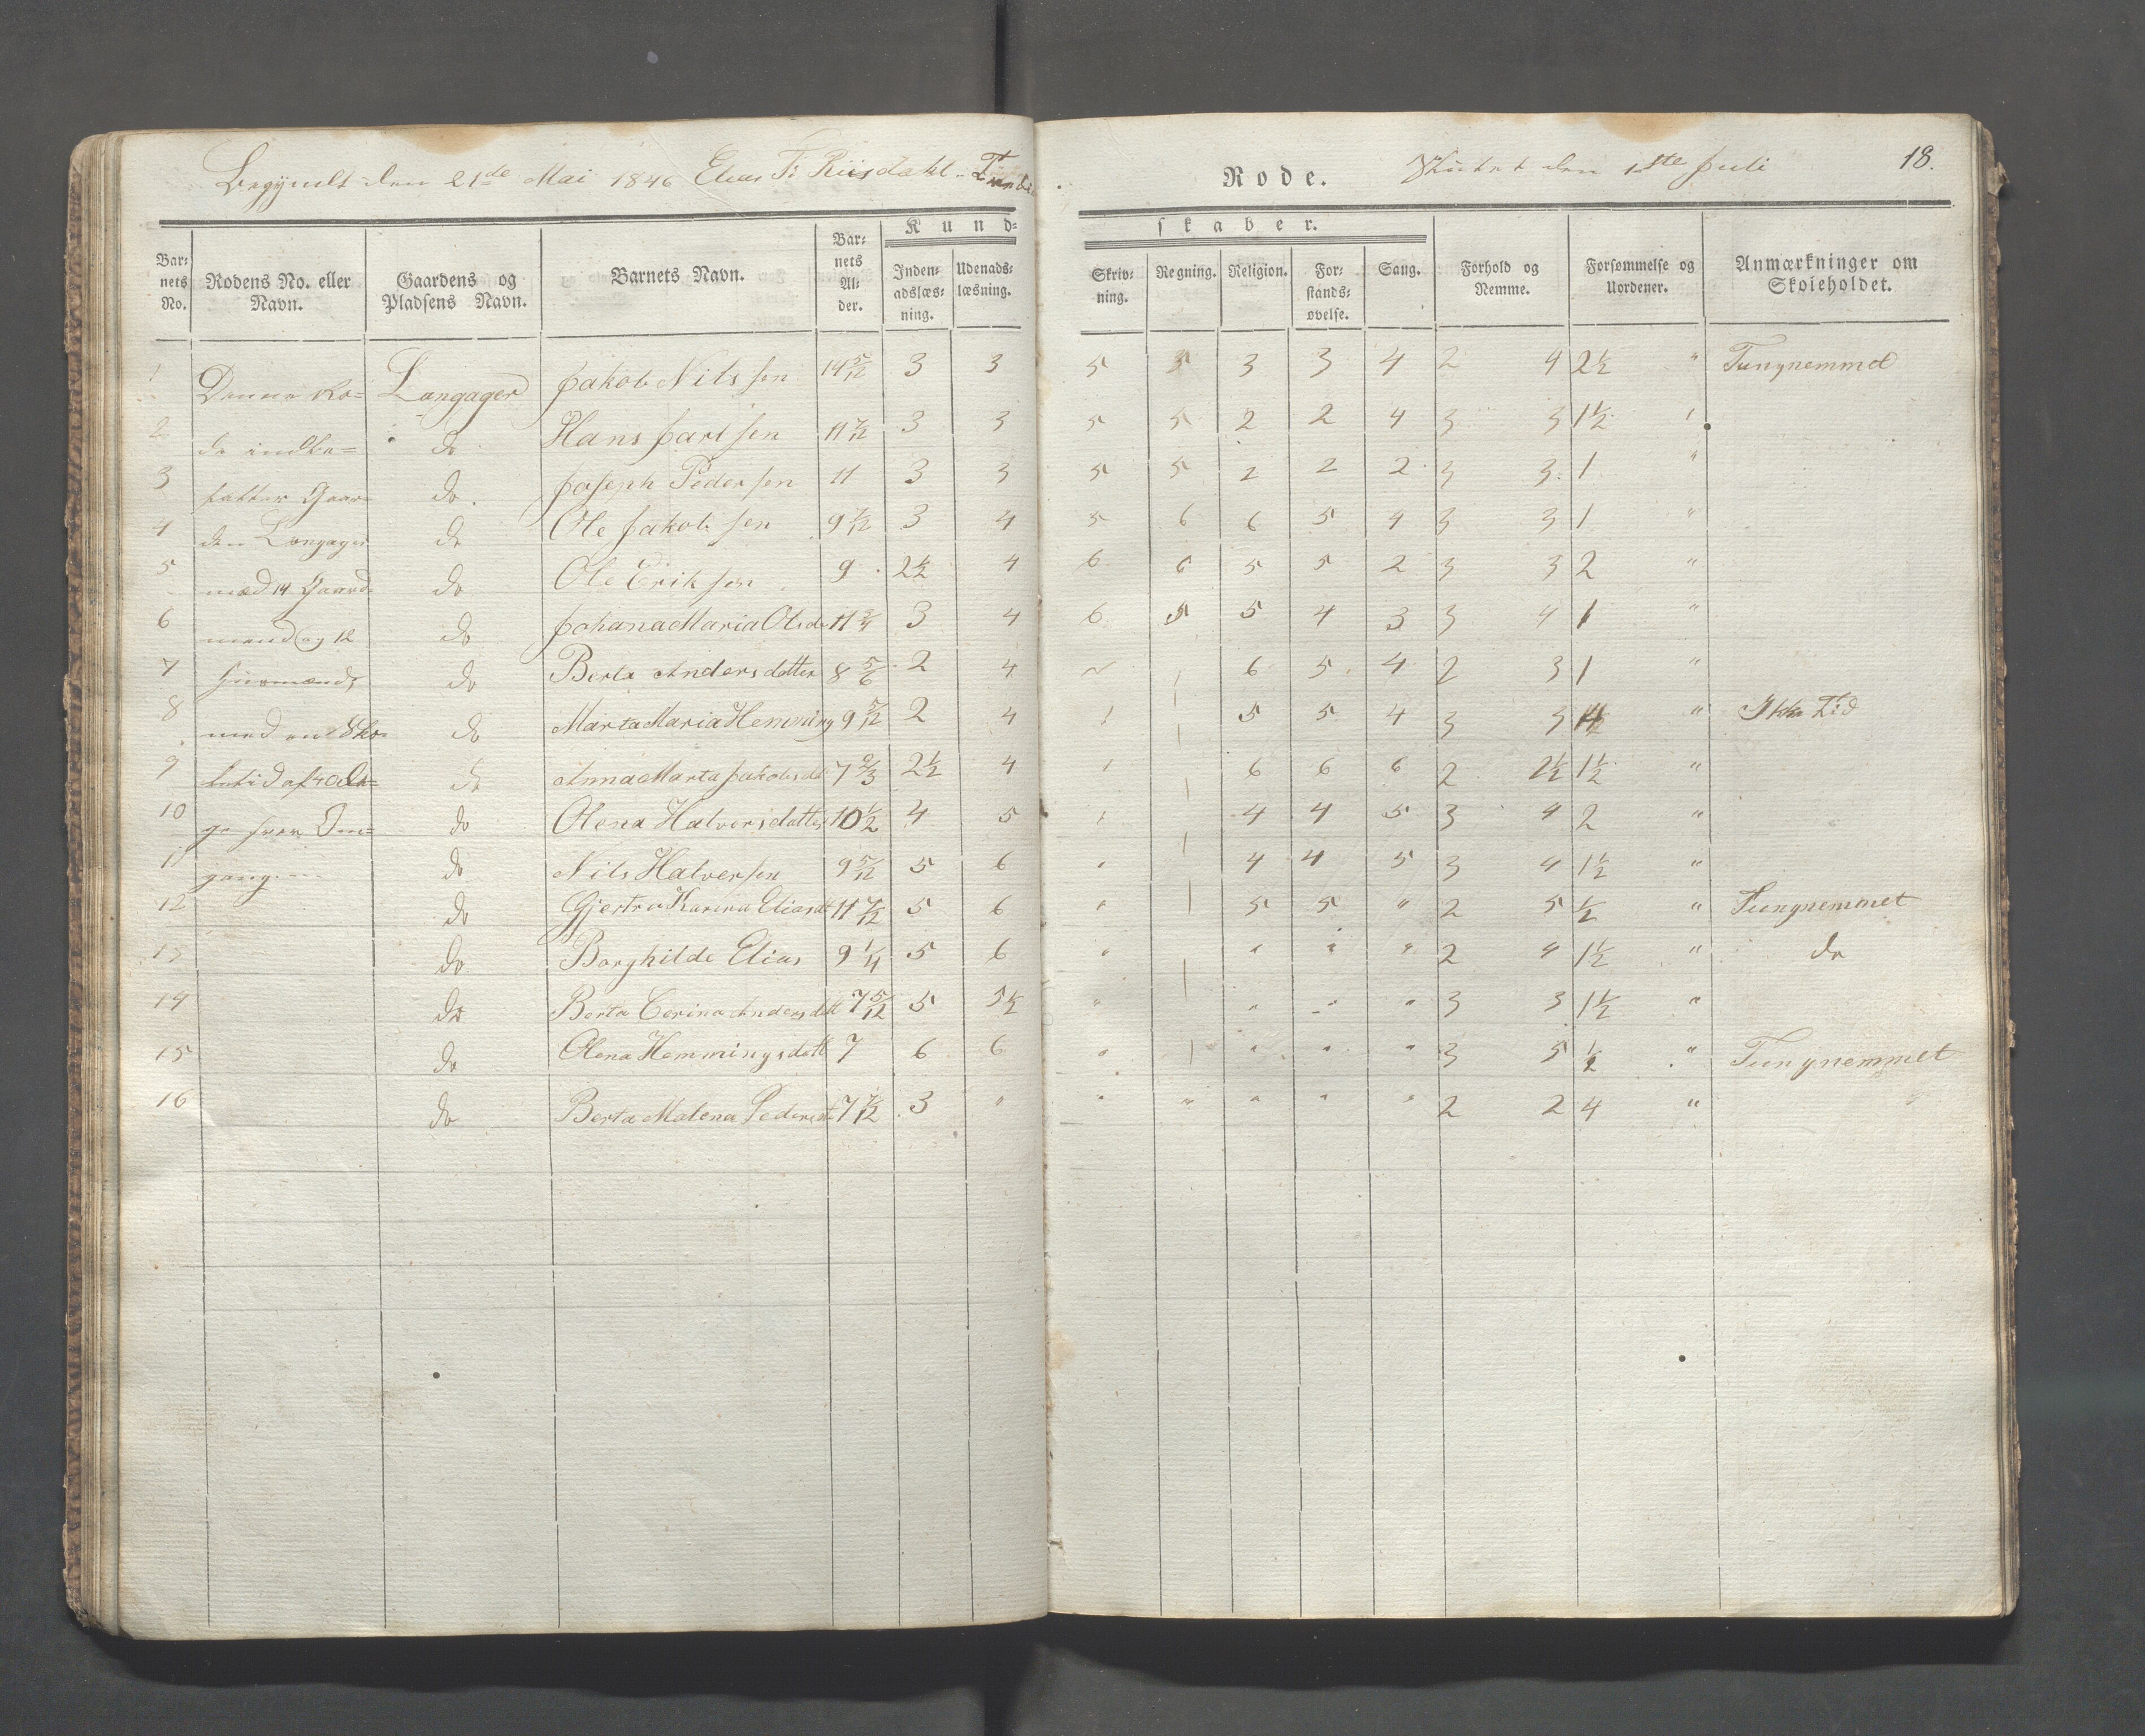 Begyndt den 21de Mai 1846 Elias T: Riisdahl
Rode. Sluttet den 1ste Juli 18.
Kundskaber.
Barnets No. Rodens No. eller Navn. Gaardens og Pladsens Navn. Barnets Navn. Barnets Alder. Indenadslæsning. Udenadslæsning. Skrivning. Regning. Religion. Forstandsøvelse. Sang. Forhold og Nemme. Forsømmelse og Uordener. Anmærkninger om Skoleholdet.
1 Denne Ro= Langager Jakob Nilssen 14 5/12 3 3 5 5 3 3 4 2 4 2½ " Tungnemmed
2 de indbe= do Hans Jarlsen 11 7/12 3 3 5 5 2 2 4 3 3 1½
3 fatter Gaar= do Joseph Pedersen 11 3 3 5 5 2 2 2 3 3 1 "
4 den Langager do Ole Jakobsen 9 7/12 3 4 5 6 6 5 4 3 3 1 "
5 med 14 Gaard= do Ole Eriksen 9 2½ 4 6 6 5 5 2 3 3 2 "
6 mænd og 12 do Johana Maria Olsd 11 3/4 3 4 6 5 5 4 3 3 4 1 "
7 Huusmænd, do Berta Andersdatter 8 5/6 2 4 6 5 4 2 3 1 "
8 med en Sko= do Marta Maria Hemming 9 5/12 2 4 5 5 4 3 3 " Ikke Tid
9 letid af do Anna Marta Jakobsdt 7 2/3 2½ 4 6 6 6 2 2½ 1½ "
10 ge hver Om= do Olena Halversdatter 10½ 4 5 4 4 5 3 4 2 "
11 gang. do Nils Halversen 9 5/12 5 6 4 4 5 3 4 1½ "
12 do Gjertru Karina Eliasdt 11 7/12 5 6 " 5 5 " 2 5 ½ " Tungnemmet
13 do Borghilde Elias 9 1/4 5 6 " " " " 2 4 1½ " do
14 do Berta Corina Andersdatt 7 5/12 5 5½ " " " " 3 3 1½ "
15 do Olena Hemmingsdatt 7 6 6 " " " " 3 5 ½ " Tungnemmet
16 do Berta Malena Pedersdt 7 7/12 3 " " " " " " 2 2 4 " "